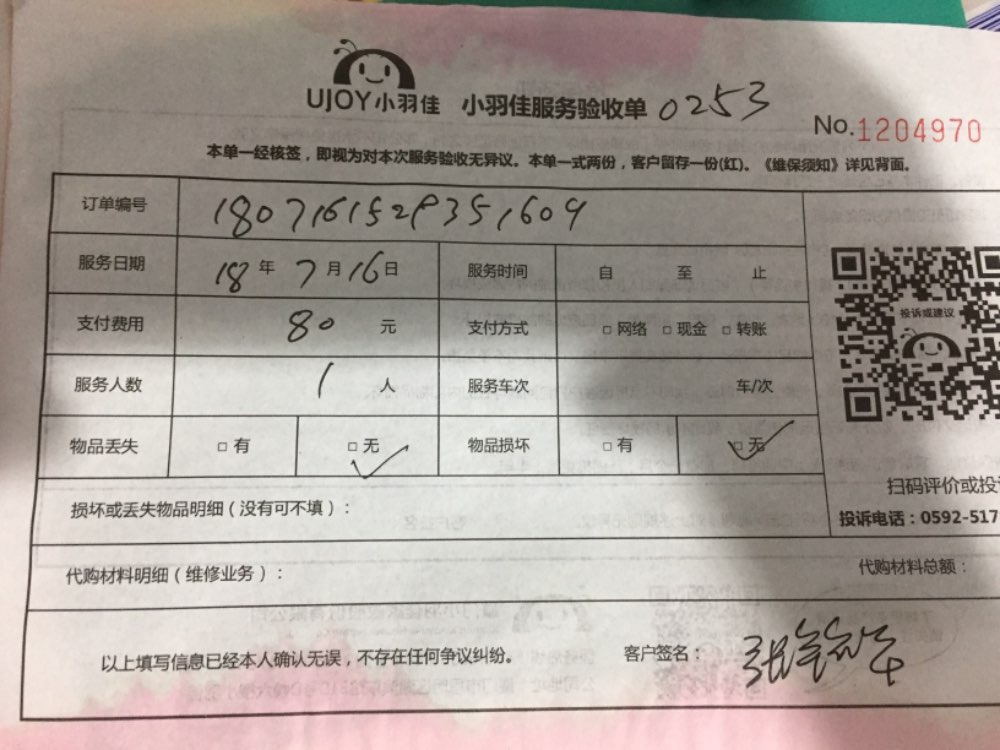 UJOY小羽佳 小羽佳服务验收单 0253
No.1204970
本单一经核签，即视为对本次服务验收无异议。本单一式两份，客户留存一份(红)。《维保须知》详见背面。
订单编号 1807161529351609
服务日期 18年7月16日 服务时间 自 至 止
支付费用 80 元 支付方式 □网络 □现金 □转账
投诉或建议
服务人数 1 人 服务车次 车/次
物品丢失 □有 □无 物品损坏 □有 □无
扫码评价或投
损坏或丢失物品明细（没有可不填）：
投诉电话：0592-517
代购材料明细（维修业务）： 代购材料总额：
以上填写信息已经本人确认无误，不存在任何争议纠纷。 客户签名：